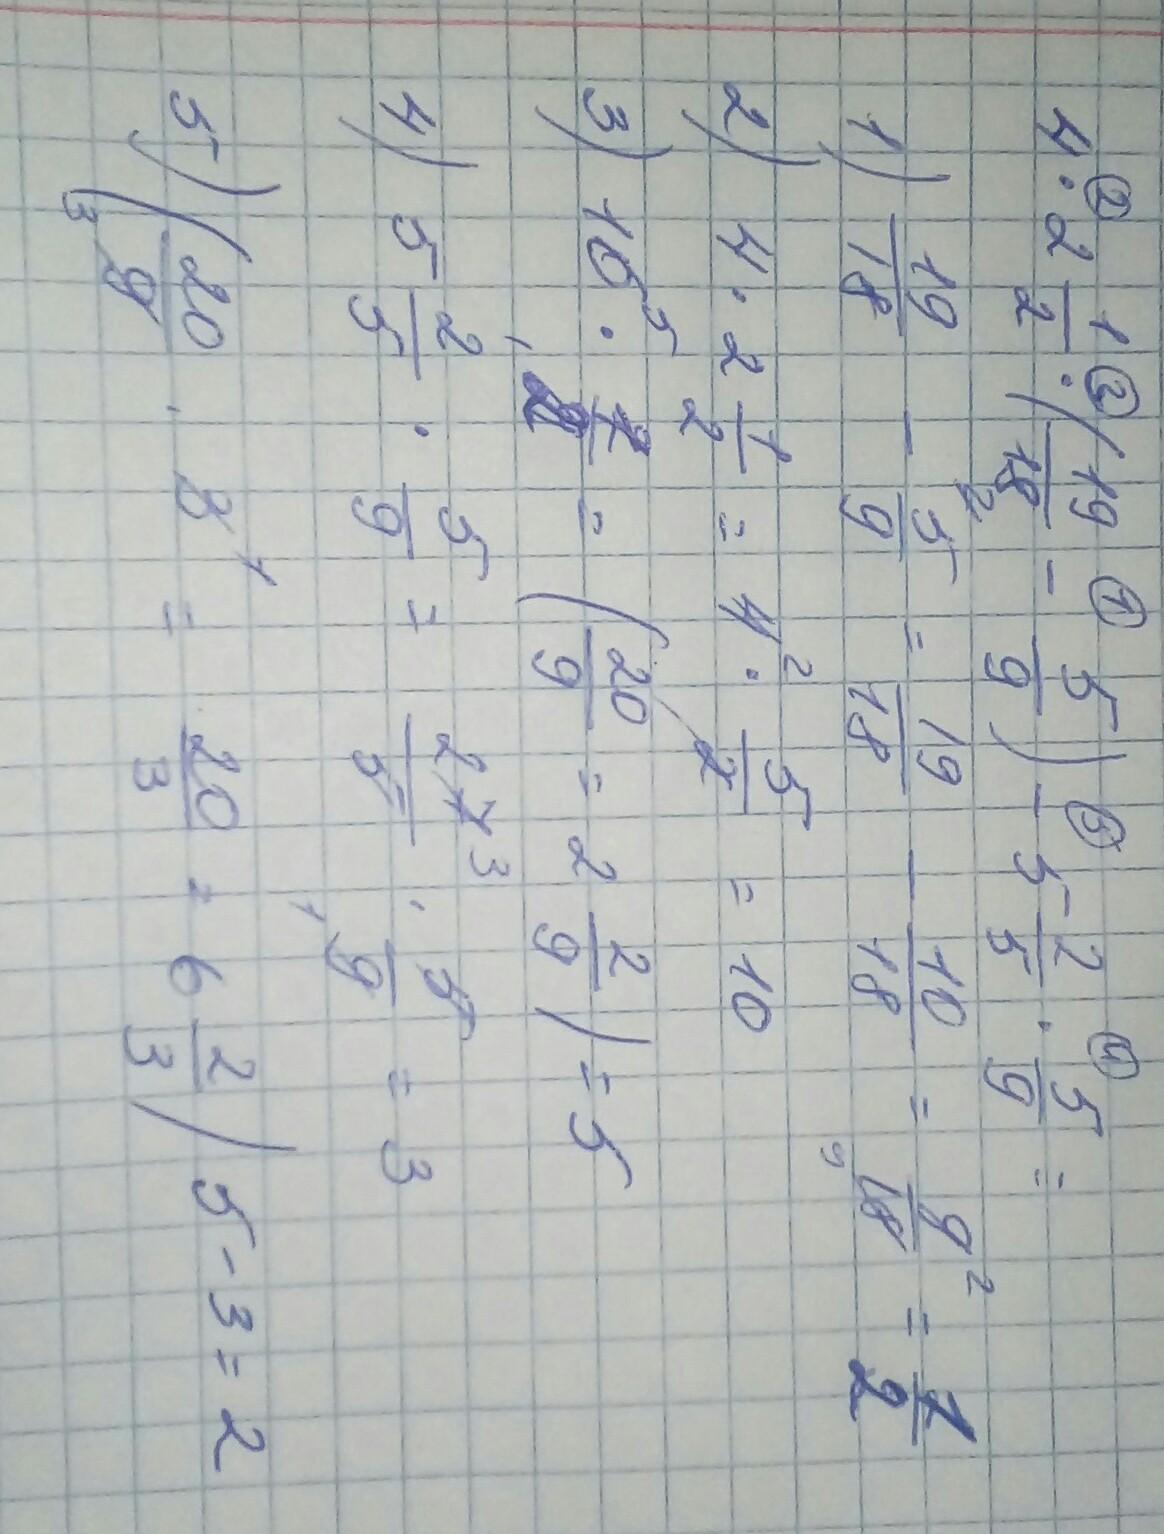 4 · 2 1/2 · (19/18 - 5/9) - 5 2/5 · 5/9 =
1) 19/18 - 5/9 = 19/18 - 10/18 = 9/18 = 1/2
2) 4 · 2 1/2 = 4 · 5/2 = 10
3) 10 · 1/2 = (20/9 = 2 2/9) = 5
4) 5 2/5 · 5/9 = 27/5 · 5/9 = 3
5) (20/9 · 3 = 20/3 = 6 2/3) 5 - 3 = 2